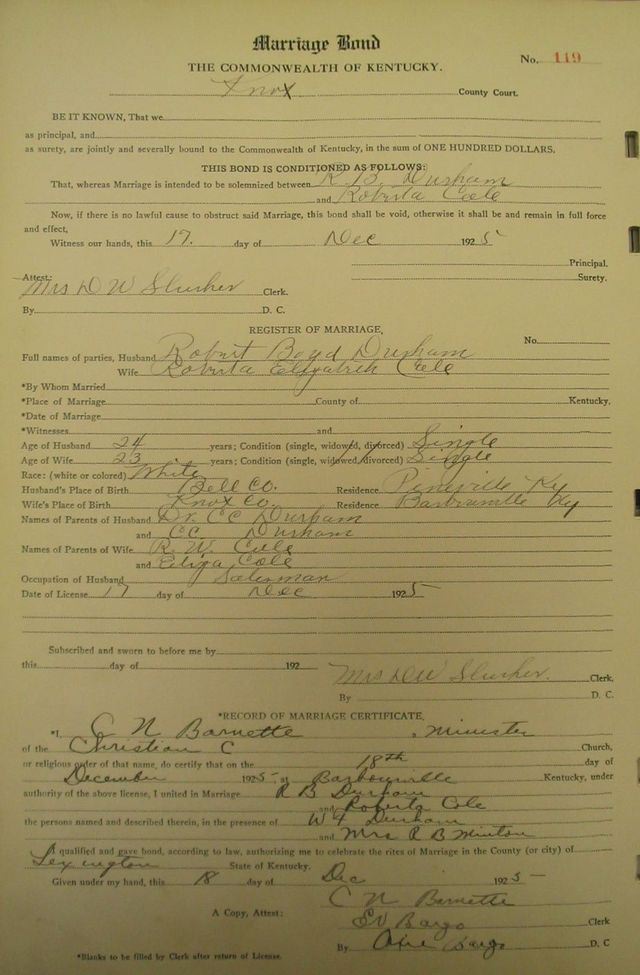 Marriage Bond
No. 119
THE COMMONWEALTH OF KENTUCKY.
Knox County Court.
BE IT KNOWN, That we
as principal, and
as surety, are jointly and severally bound to the Commonwealth of Kentucky, in the sum of ONE HUNDRED DOLLARS.
THIS BOND IS CONDITIONED AS FOLLOWS:
That, whereas Marriage is intended to be solemnized between R. B. Durham
and Roberta Cole
Now, if there is no lawful cause to obstruct said Marriage, this bond shall be void, otherwise it shall be and remain in full force
and effect,
Witness our hands, this 17. day of Dec 1925
Principal.
Attest: Surety.
Mrs D W Slusher Clerk.
By D. C.
REGISTER OF MARRIAGE,
No.
Full names of parties, Husband Robert Boyd Durham
Wife Roberta Elizabeth Cole
*By Whom Married
*Place of Marriage County of Kentucky,
*Date of Marriage
*Witnesses and
Age of Husband 24 years; Condition (single, widowed, divorced) Single
Age of Wife 23 years; Condition (single, widowed, divorced) Single
Race: (white or colored) White
Husband's Place of Birth Bell Co. Residence Pineville Ky
Wife's Place of Birth Knox Co. Residence Barbourville Ky
Names of Parents of Husband Dr. CC Durham
and CC. Durham
Names of Parents of Wife R. W. Cole
and Eliza Cole
Occupation of Husband Salesman
Date of License 17 day of Dec 1925
Subscribed and sworn to before me by
this day of 192
Mrs D W Slusher. Clerk.
By D. C.
*RECORD OF MARRIAGE CERTIFICATE,
*I, C N Barnette, Minister
of the Christian C Church,
or religious order of that name, do certify that on the 18th day of
December 1925, at Barbourville Kentucky, under
authority of the above license, I united in Marriage R B Durham
and Roberta Cole
the persons named and described therein, in the presence of Durham
and Mrs R B Minton
qualified and gave bond, according to law, authorizing me to celebrate the rites of Marriage in the County (or city) of
Lexington State of Kentucky.
Given under my hand, this 18 day of Dec 1925
C N Barnette
A Copy, Attest: Bargo Clerk
By Bargo D. C
*Blanks to be filled by Clerk after return of License.